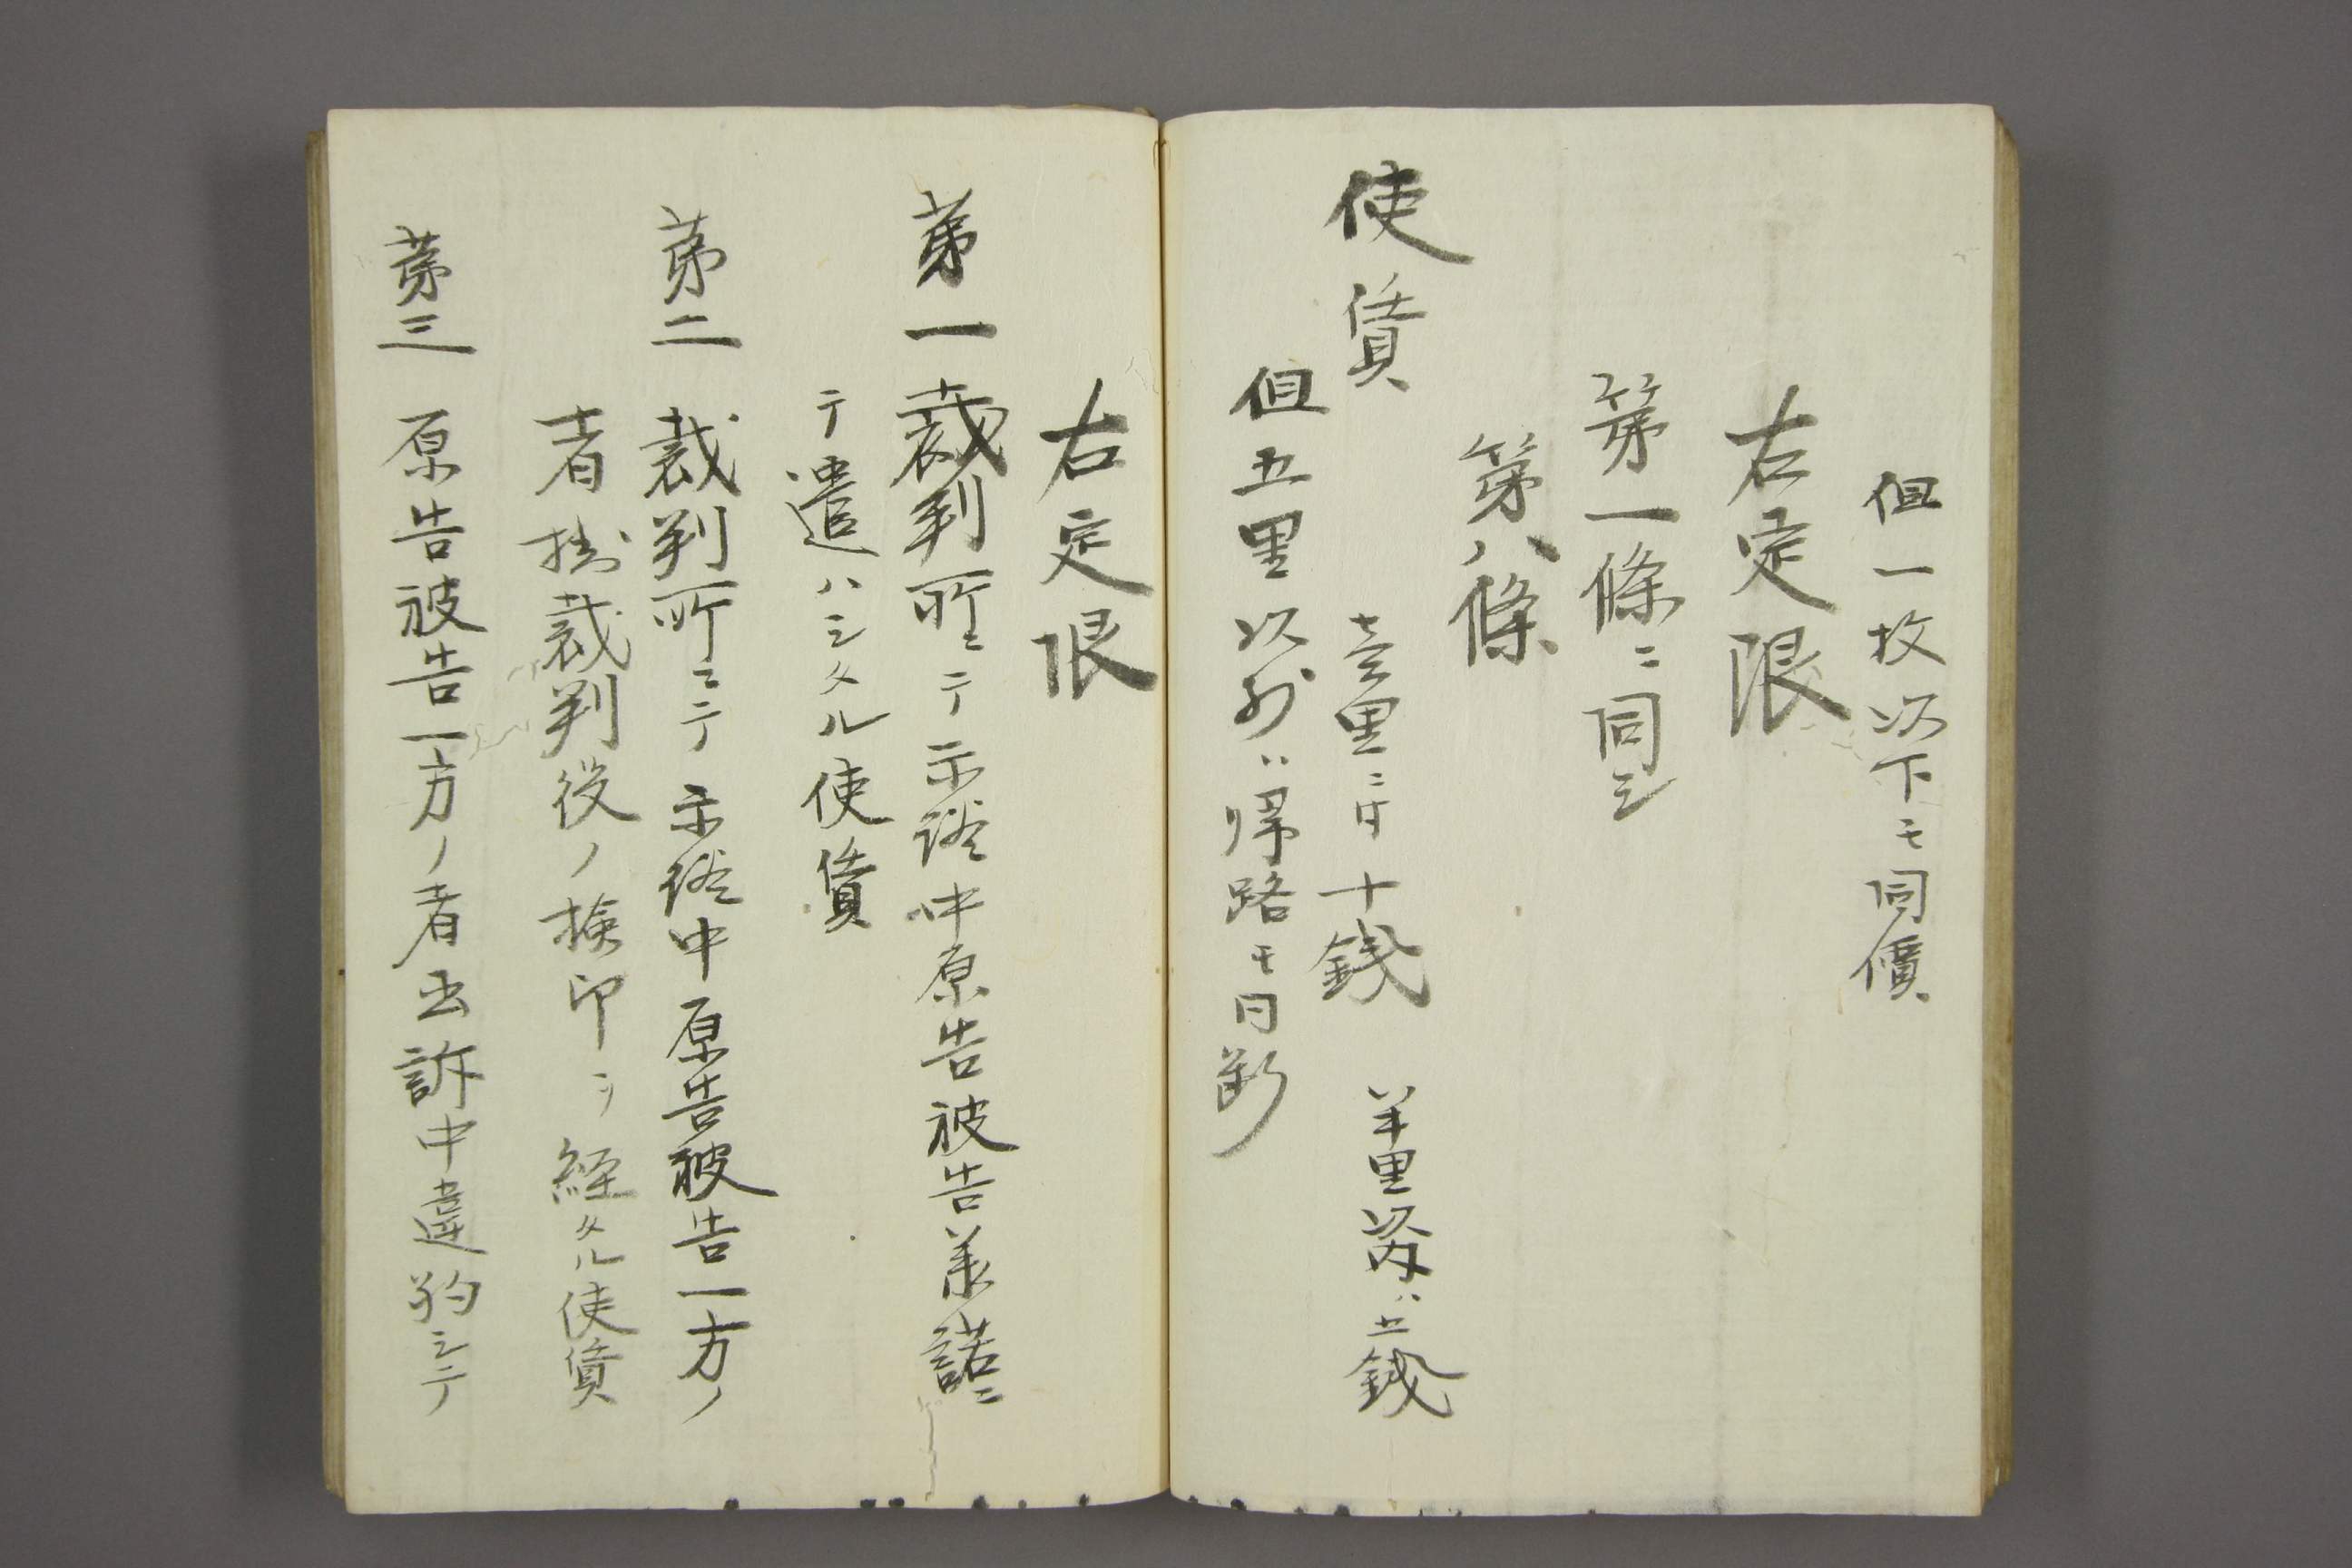 但一枚以下モ同價
右定限
第一條ニ同シ
第八條
使賃
壹里ニ付十錢　半里以内ハ五錢
但五里以外ハ帰路モ同断
右定限
第一　裁判所ニテ示談中原告被告承諾ニ
テ遣ハシタル使賃
第二　裁判所ニテ示談中原告被告一方ノ
者掛裁判役ノ検印ヲ経タル使賃
第三　原告被告一方ノ者出訴中違約シテ